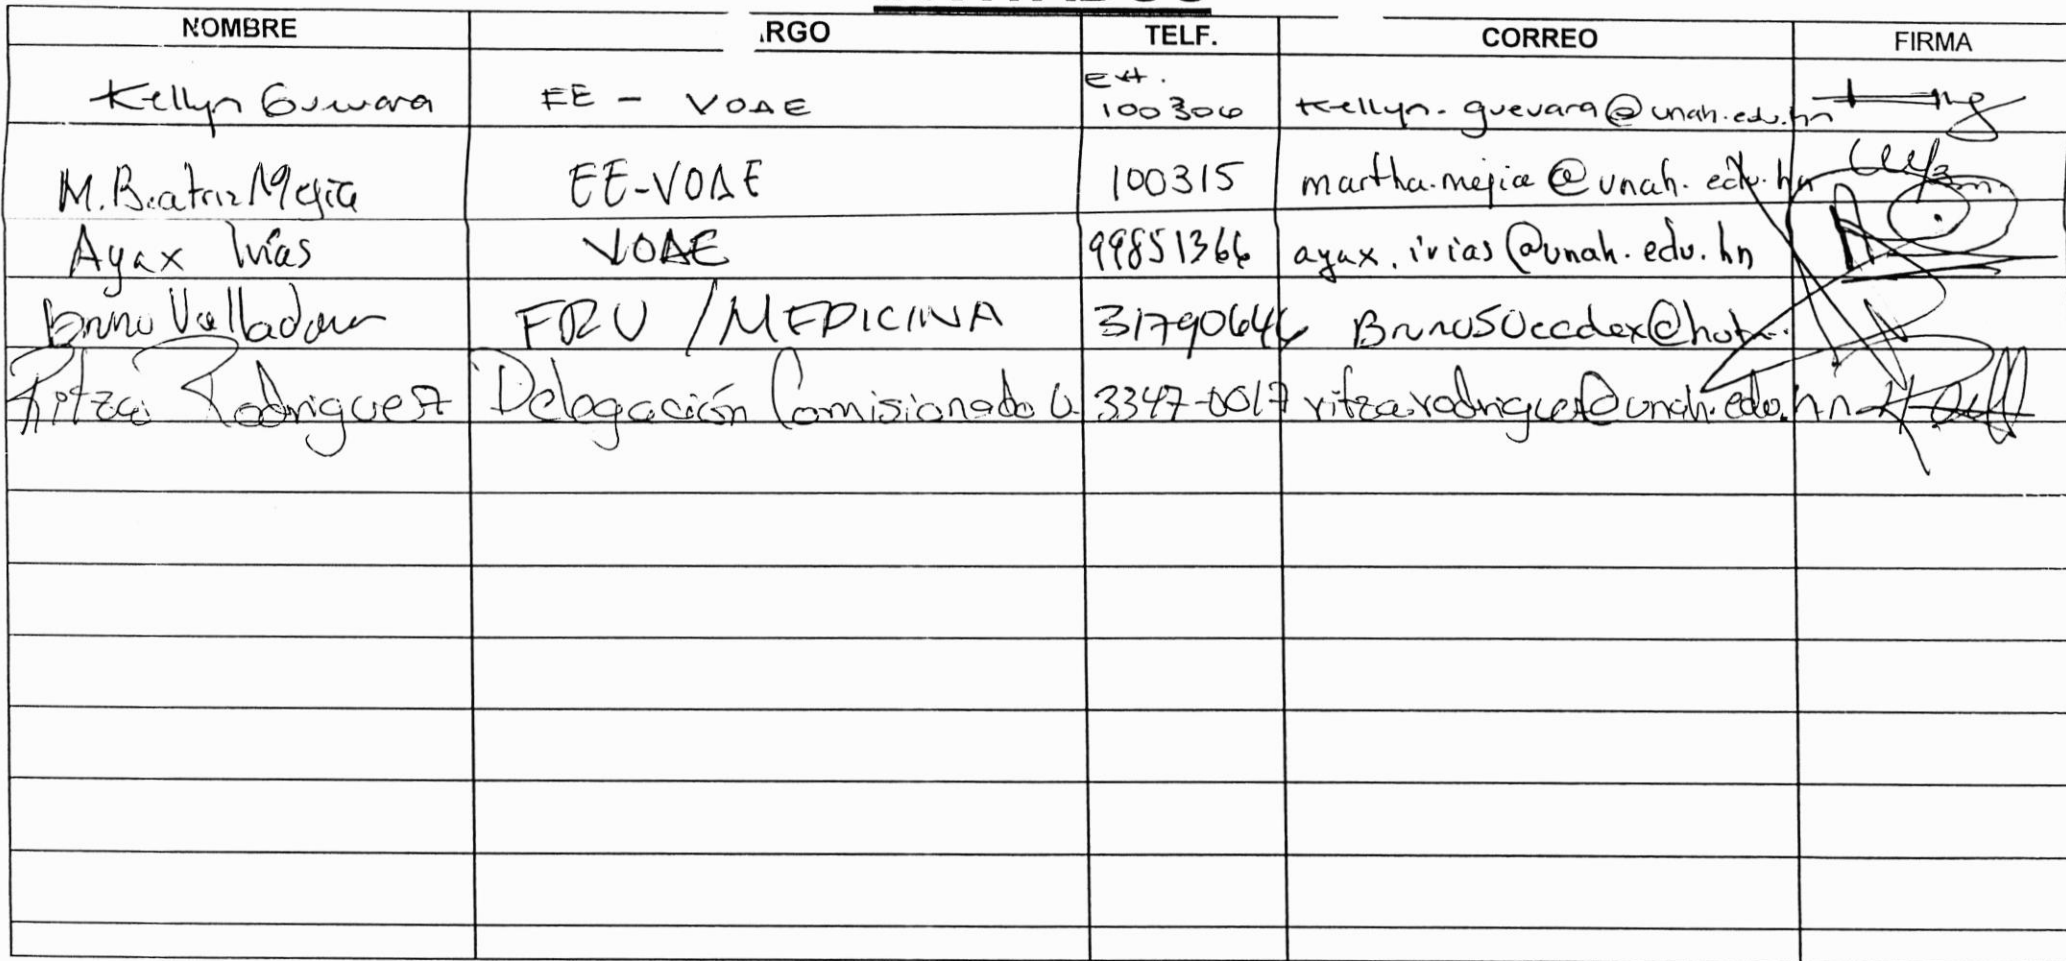 NOMBRE .RGO TELF. CORREO FIRMA
Kellyn Guevara EE - VOAE Ext. 100306 Kellyn.guevara@unah.edu.hn
M. Beatriz Mejia EE-VOAE 100315 martha.mejia@unah.edu.hn
Ayax Irías VOAE 99851366 ayax.irias@unah.edu.hn
Bruno Valladares FRU / MEDICINA 31790646
Ritza Rodriguez Delegación Comisionado U. 3347-0017 ritza.rodriguez@unah.edu.hn